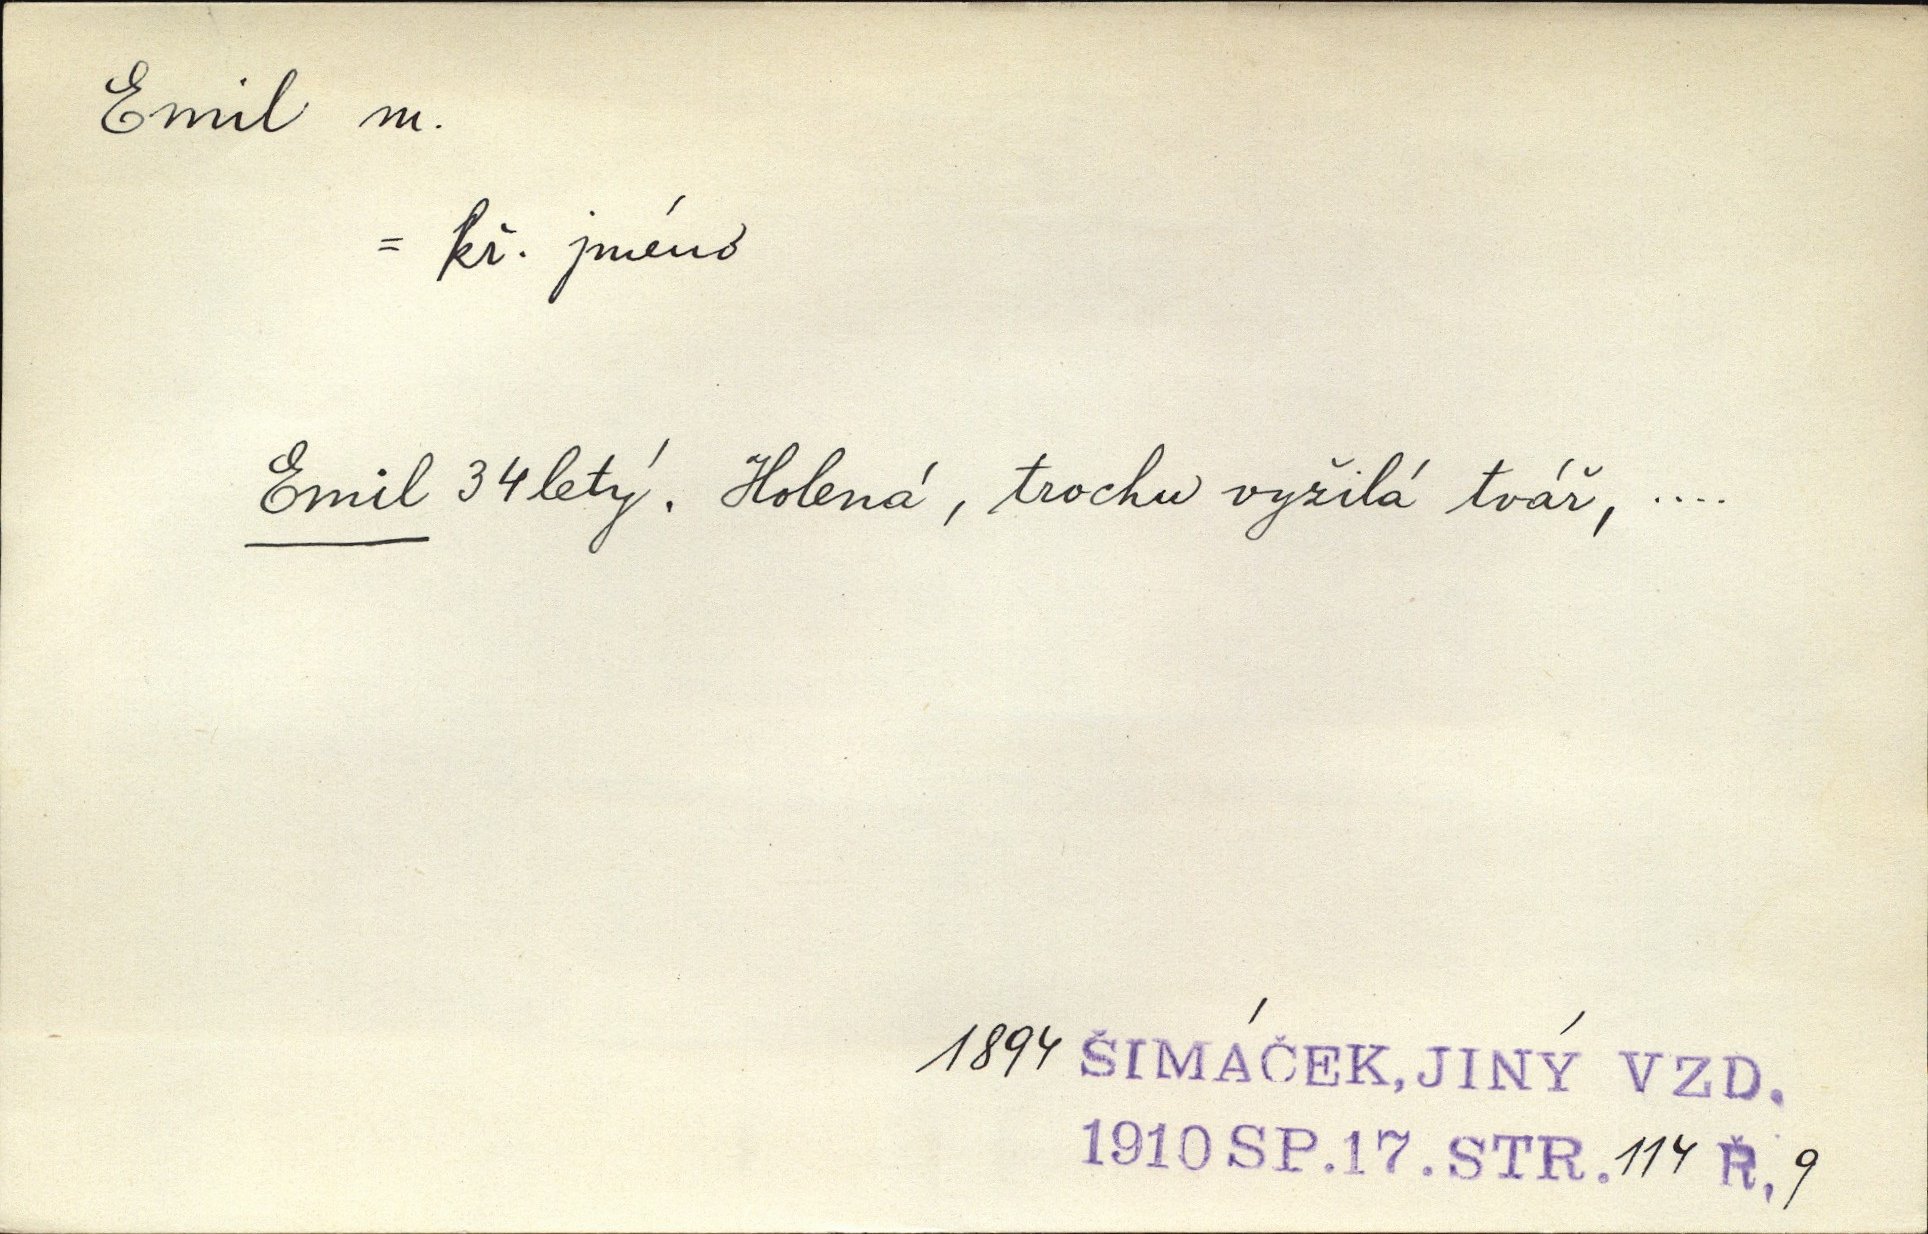 Emil m.
= kř. jméno
Emil 34letý. Holená, trochu vyžilá tvář, ....
1894 ŠIMÁČEK, JINÝ VZD.
1910 SP. 17. STR. 114 Ř. 9